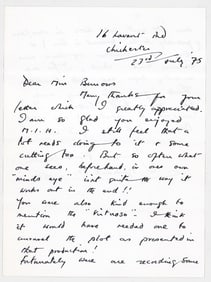 16 Lavant Rd
Chichester
23rd July '75
Dear Miss Burrows
Many thanks for your
letter which I greatly appreciated.
I am so glad you enjoyed
M.I.H. I still feel that a
lot needs doing to it & some
cutting too. But so often what
one sees, beforehand, in one's own
"minds eye" isn't quite the way it
works out in the end!!
You are also kind enough to
mention the "Virtuoso". I think
it would have needed me to
unravel the plot as presented in
that production!
Fortunately we are recording some